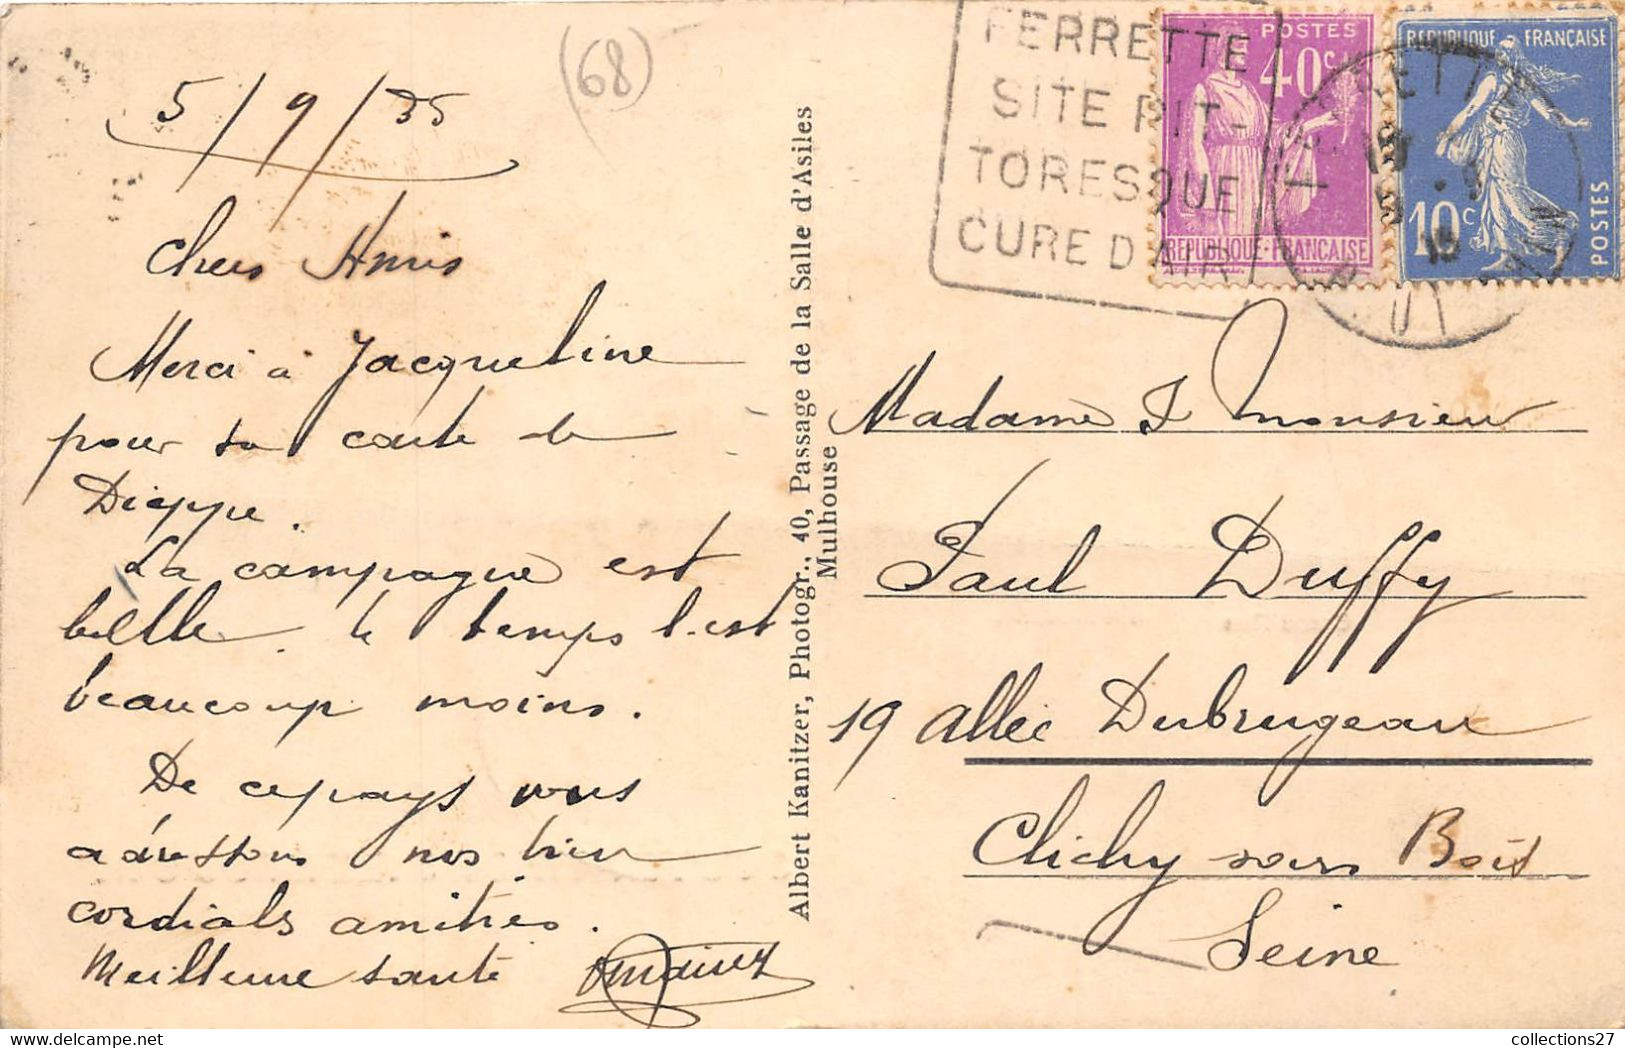 (68)
5/9/35
Chers Amis
Merci à Jacqueline
pour sa carte de
Dieppe.
La campagne est
belle. le temps l'est
beaucoup moins.
De ce pays vous
adressons nos bien
cordials amitiés.
Meilleure santé
Albert Kanitzer, Photogr., 40, Passage de la Salle d'Asiles
Mulhouse
FERRETTE
SITE PIT-
TORESQUE
CURE D'AIR
POSTES
40c
REPUBLIQUE-FRANÇAISE
REPUBLIQUE FRANÇAISE
10c
POSTES
Madame & monsieur
Paul Duffy
19 allée Dubrugeau
Clichy sous Bois
Seine
collections27